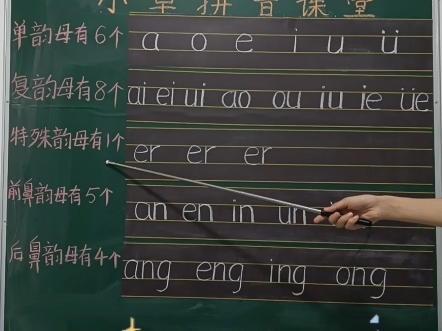 小草拼音课堂
单韵母有6个 a o e i u ü
复韵母有8个 ai ei ui ao ou iu ie üe
特殊韵母有1个 er er er
前鼻韵母有5个 an en in un
后鼻韵母有4个 ang eng ing ong